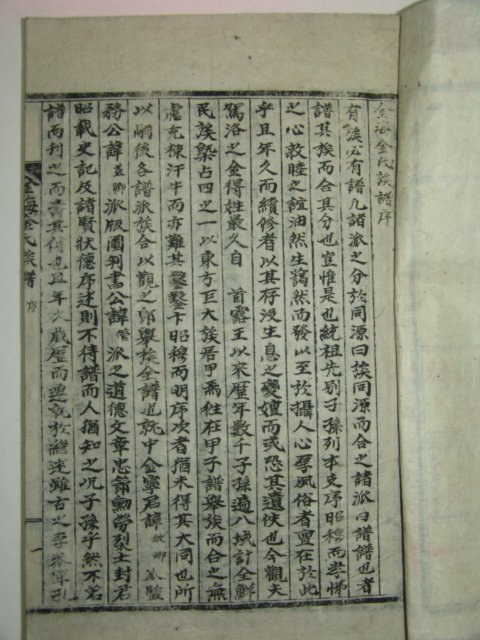 金海金氏族譜序
有族必有譜凡諸派之分於同源曰族同源而合之諸派曰譜譜也者
譜其族而合其分也豈惟是也統祖先別子孫列本支序昭穆而孝悌
之心敦睦之誼油然生藹然而發以至於攝人心厚風俗者亶在於此
乎且年久而續修者以其存沒生息之變嬗而或恐其遺佚也今觀夫
駕洛之金得姓最久自 首露王以來歷年數千子孫遍八域計全鮮
民族槩占四之一以東方巨大族居甲焉徃在甲子譜舉族而合之無
慮充棟汗牛而亦難其鑿鑿卞昭穆而明序次者猶未得其大同也所
以嗣後各譜派族合以觀之卽舉族全譜也就中金寧君諱 派監
務公諱 派版圖判書公諱 派之道德文章忠節勳勞烈士封君
昭載史記及諸賢狀德序述則不待譜而人猶知之况子孫乎然不若
譜而刊之而書其傳也且年久歲歷而述雖古之
金海金氏族譜 序